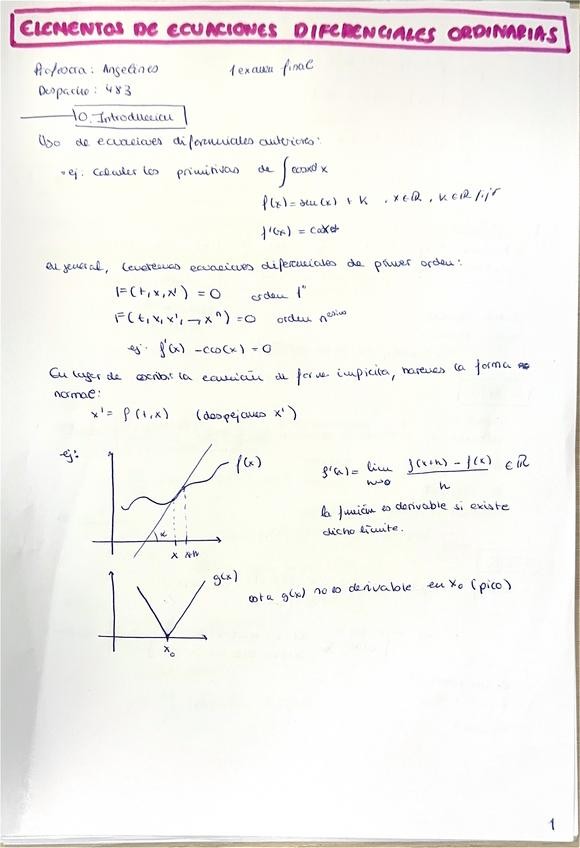 ELEMENTOS DE ECUACIONES DIFERENCIALES ORDINARIAS
Profesora: Angelines 1 examen final
Despacho: 483
0. Introducción
Uso de ecuaciones diferenciales anteriores:
ej. Calcular las primitivas de ∫cosxdx
f(x)= sen(x) + K , x∈ℝ, K∈ℝ fijo
f'(x) = cosx
En general, tenemos ecuaciones diferenciales de primer orden:
F(t,x,x') = 0 orden 1º
F(t,x,x',→xⁿ) = 0 orden n-ésimo
ej: f'(x) - cos(x) = 0
En lugar de escribir la ecuación de forma implícita, haremos la forma
normal:
x' = f(t,x) (despejamos x')
ej:
f(x)
α
x x+h
f'(x) = lim h→0 f(x+h) - f(x) / h ∈ℝ
la función es derivable si existe
dicho límite.
g(x)
x₀
esta g(x) no es derivable en x₀ (pico)
1